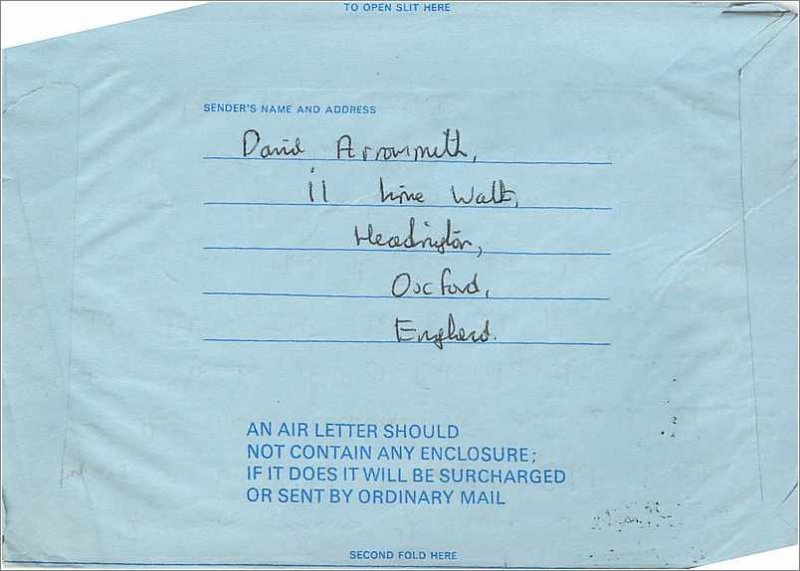 TO OPEN SLIT HERE
SENDER'S NAME AND ADDRESS
David Arrowsmith,
11 Lime Walk,
Headington,
Oxford,
England.
AN AIR LETTER SHOULD
NOT CONTAIN ANY ENCLOSURE;
IF IT DOES IT WILL BE SURCHARGED
OR SENT BY ORDINARY MAIL
SECOND FOLD HERE